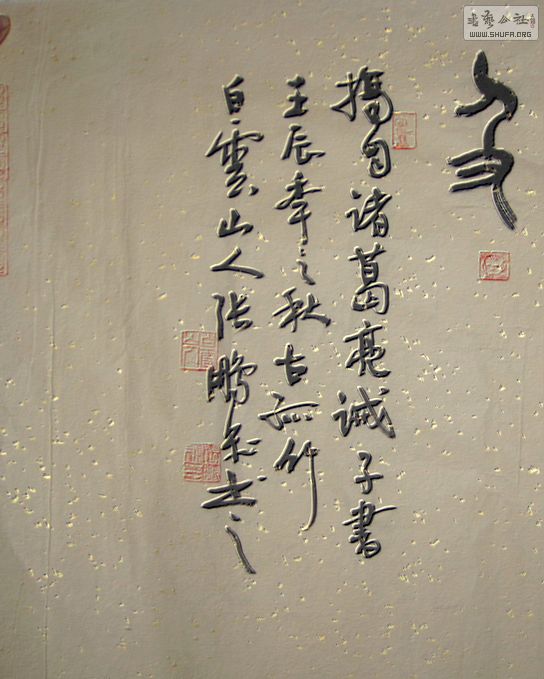 书艺公社
WWW.SHUFA.ORG
摘自诸葛亮诫子書
壬辰年之秋古孤竹
白雲山人张鹏书之